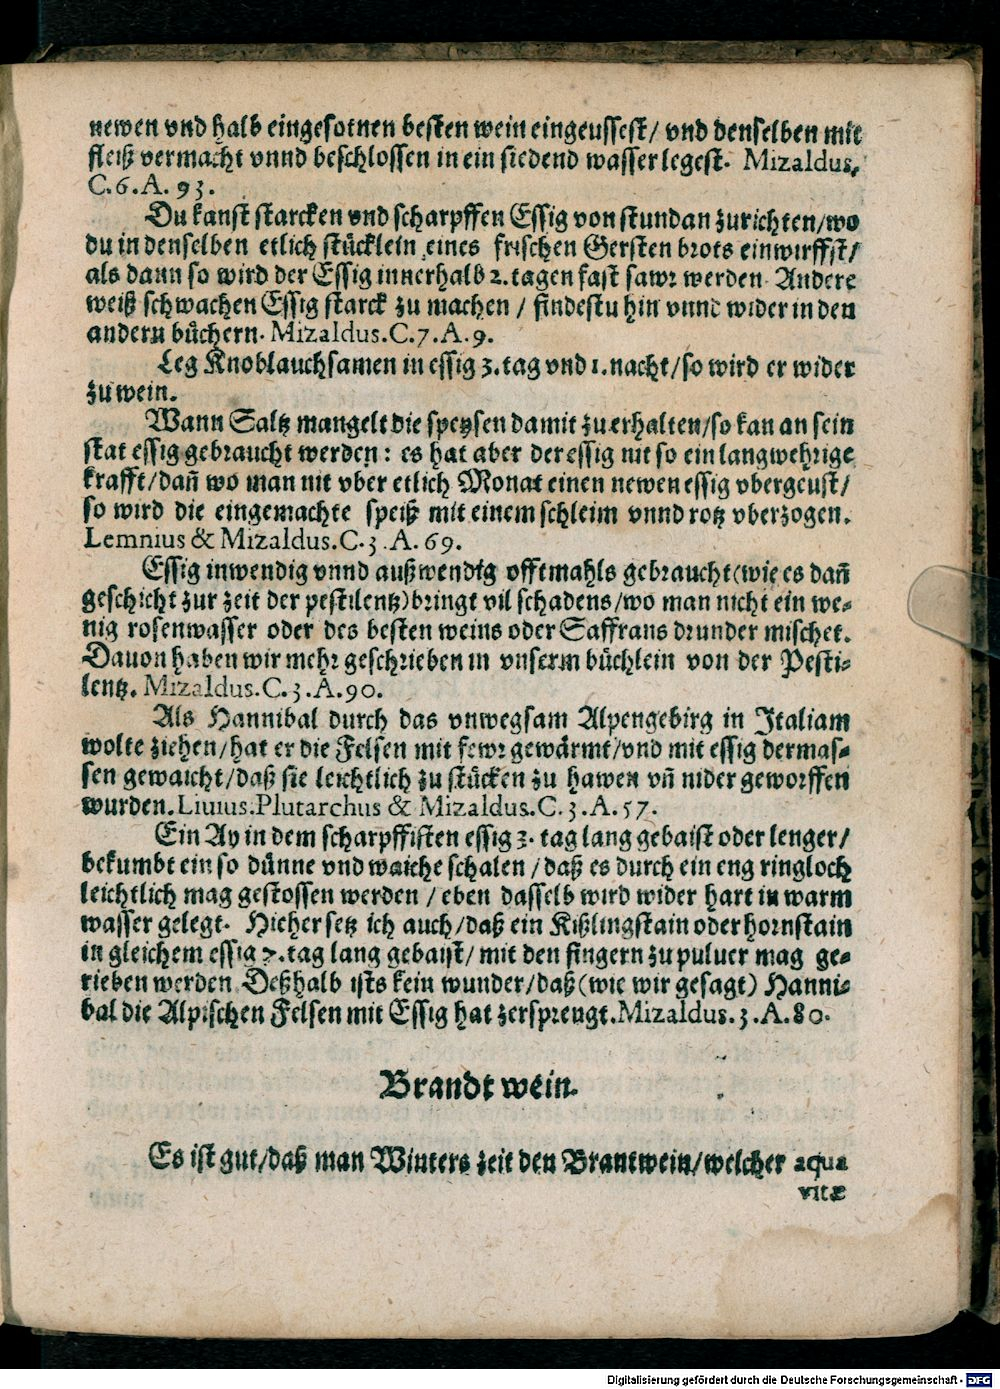 newen vnd halb eingesotnen besten wein eingeussest/ vnd denselben mit
fleiß vermacht vnnd beschlossen in ein siedend wasser legest. Mizaldus.
C.6.A.93.
Du kanst starcken vnd scharpffen Essig von stundan zurichten/wo
du in denselben etlich stücklein eines frischen Gersten brots einwirffst/
als dann so wird der Essig innerhalb 2. tagen fast sawr werden Andere
weiß schwachen Essig starck zu machen / findestu hin vnnd wider in den
andern büchern. Mizaldus.C.7.A.9.
Leg Knoblauchsamen in essig 3. tag vnd 1. nacht/so wird er wider
zu wein.
Wann Saltz mangelt die speysen damit zu erhalten/so kan an sein
stat essig gebraucht werden: es hat aber der essig nit so ein langwehrige
krafft/dañ wo man nit vber etlich Monat einen newen essig vbergeust/
so wird die eingemachte speiß mit einem schleim vnnd rotz vberzogen.
Lemnius & Mizaldus.C.3.A.69.
Essig inwendig vnnd außwendig offtmahls gebraucht(wie es dañ
geschicht zur zeit der pestilentz)bringt vil schadens/wo man nicht ein we-
nig rosenwasser oder des besten weins oder Saffrans drunder mischet.
Dauon haben wir mehr geschrieben in vnserm büchlein von der Pesti-
lentz. Mizaldus.C.3.A.90.
Als Hannibal durch das vnwegsam Alpengebirg in Italiam
wolte ziehen/hat er die Felsen mit fewr gewärmt/vnd mit essig dermas-
sen gewaicht/daß sie leichtlich zu stücken zu hawen vñ nider geworffen
wurden. Liuius.Plutarchus & Mizaldus.C.3.A.57.
Ein Ay in dem scharpffisten essig 3. tag lang gebaist oder lenger/
bekumbt ein so dünne vnd waiche schalen/daß es durch ein eng ringloch
leichtlich mag gestossen werden / eben dasselb wird wider hart in warm
wasser gelegt. Hieher setz ich auch/daß ein Kißlingstain oder hornstain
in gleichem essig 7. tag lang gebaist/ mit den fingern zu puluer mag ge-
rieben werden Deßhalb ists kein wunder/daß(wie wir gesagt) Hanni-
bal die Alpischen Felsen mit Essig hat zersprengt. Mizaldus.3.A.80.
Brandt wein.
Es ist gut/daß man Winters zeit den Brantwein/welcher aqua
vitæ
Digitalisierung gefördert durch die Deutsche Forschungsgemeinschaft - DFG